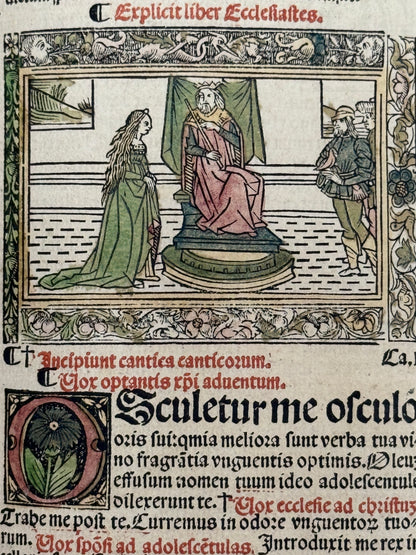 ¶ Explicit liber Ecclesiastes.
¶ † Incipiunt cantica canticorum.
Ca.
¶ Vox optantis xp̄i aduentum.
OSculetur me osculo
oris sui:qmia meliora sunt verba tua vi-
no fragrātia vnguentis optimis. Oleuʒ
effusum nomen tuum ideo adolescentule
dilexerunt te. † Vox ecclesie ad christuʒ
Trahe me post te. Curremus in odore vnguentoꝝ tuoꝝ
rum. Vox spōsi ad adolescētulas. Introduxit me rex